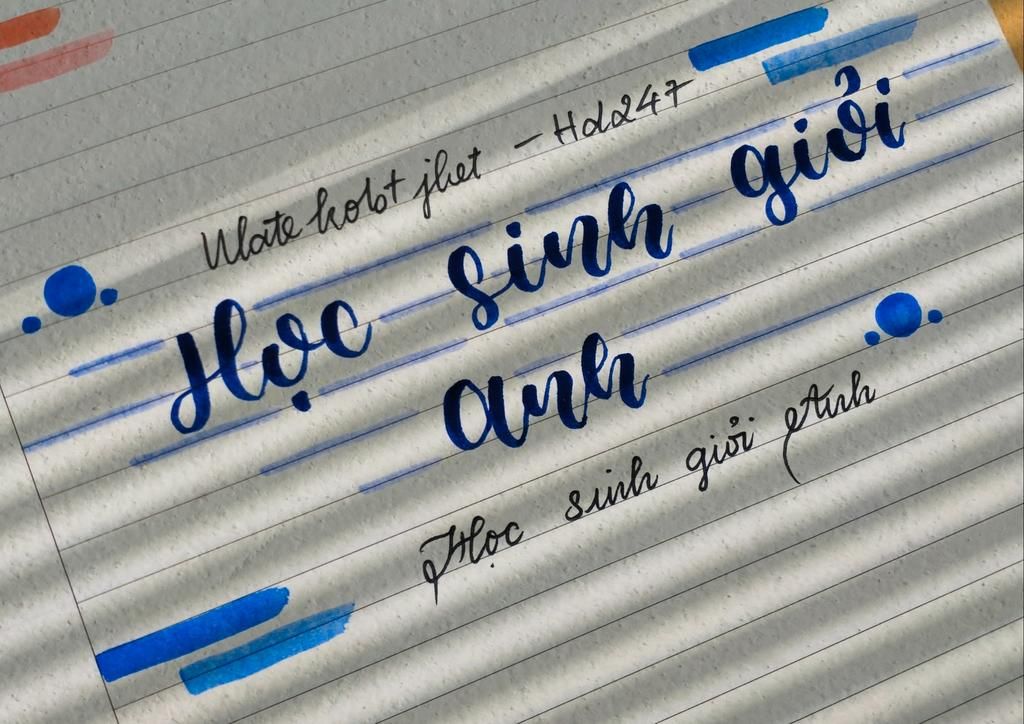 Wate kobt jhet - Hdd247
Học sinh giỏi
anh
Học sinh giỏi Anh